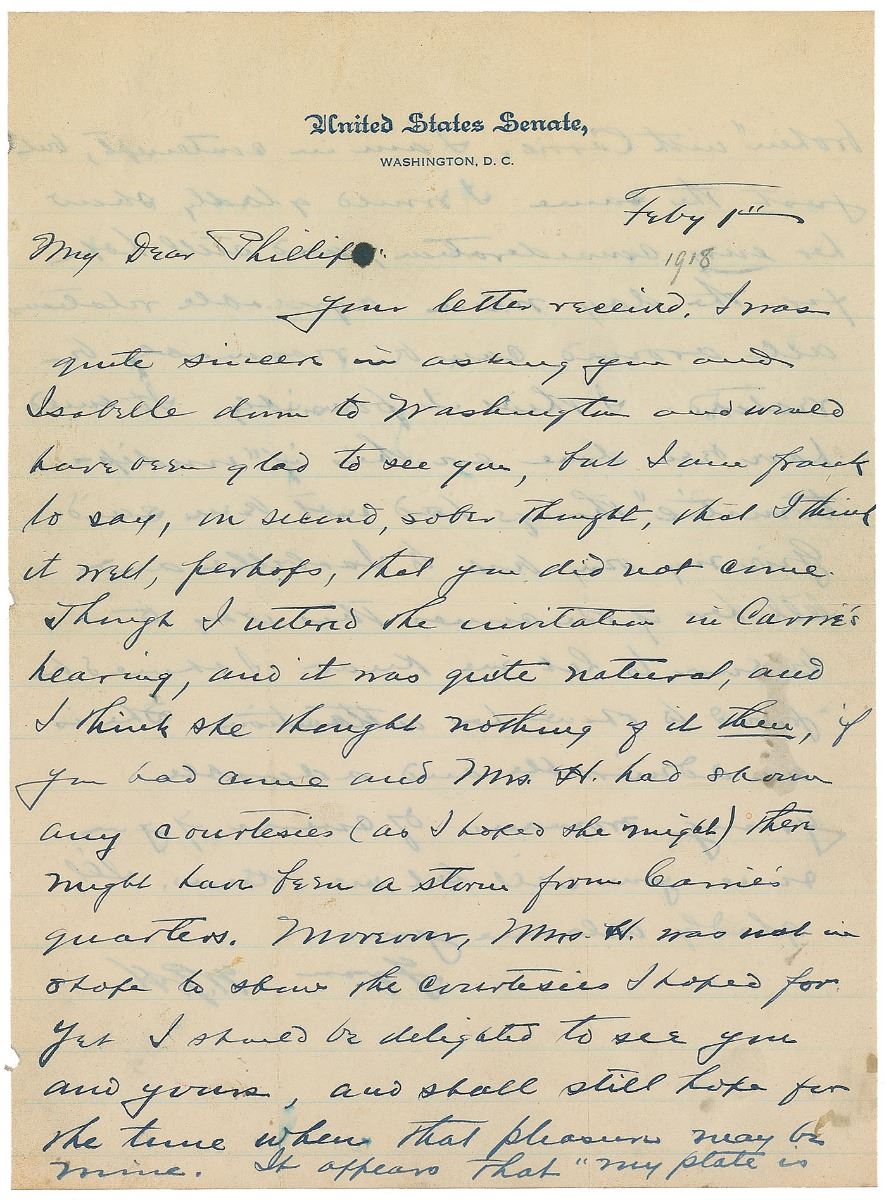 United States Senate,
WASHINGTON, D. C.
Feby 1st
1918
My Dear Phillips:
Your letter received. I was
quite sincere in asking you and
Isabelle down to Washington and would
have been glad to see you, but I am frank
to say, on second, sober thought, that I think
it well, perhaps, that you did not come.
Though I uttered the invitation in Carrie's
hearing, and it was quite natural, and
I think she thought nothing of it then, if
you had come and Mrs. H. had shown
any courtesies (as I hoped she might) there
might have been a storm from Carrie's
quarters. Moreover, Mrs. H. was not in
shape to show the courtesies I hoped for.
Yet I should be delighted to see you
and yours, and shall still hope for
the time when that pleasure may be
mine. It appears that "my plate is